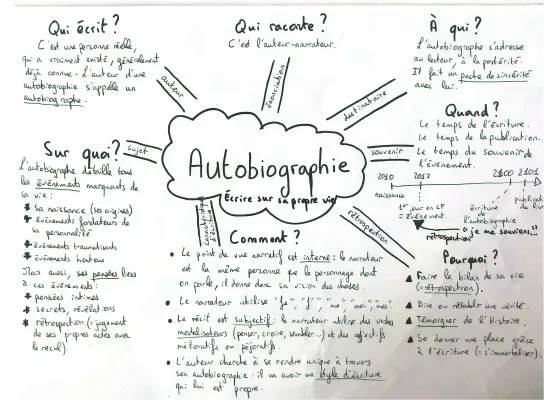 Qui écrit ?
C'est une personne réelle,
qui a vraiment existé, généralement
déjà connue. L'auteur d'une
autobiographie s'appelle un
autobiographe.
Qui raconte ?
C'est l'auteur-narrateur.
À qui ?
L'autobiographe s'adresse
au lecteur, à la postérité.
Il fait un pacte de sincérité
avec lui.
auteur
énonciation
destinataire
Quand ?
Le temps de l'écriture.
Le temps de la publication.
Le temps du souvenir de
l'événement.
sujet
souvenir
Autobiographie
Écrire sur sa propre vie
2010 2017 2100 2101
naissance
1er jour en CP
= événement
écriture
de
l'autobiographie
publication
du livre
"je me souviens..."
rétrospection
Sur quoi ?
L'autobiographe détaille tous
les événements marquants de
sa vie :
sa naissance (ses origines)
événements fondateurs de
sa personnalité
événements traumatisants
événements honteux
Mais aussi, ses pensées liées
à ces événements :
pensées intimes
secrets, révélations
rétrospection (= jugement
de ses propres actes avec
le recul)
caractéristiques
d'écriture
rétrospection
Comment ?
Le point de vue narratif est interne : le narrateur
est la même personne que le personnage dont
on parle, il donne donc sa vision des choses.
Le narrateur utilise "je", "j'", "me", "moi", "mes"
Le récit est subjectif : le narrateur utilise des verbes
modalisateurs (penser, croire, sembler...) et des adjectifs
mélioratifs ou péjoratifs.
L'auteur cherche à se rendre unique à travers
son autobiographie : il va avoir un style d'écriture
qui lui est propre.
Pourquoi ?
Faire le bilan de sa vie
(= rétrospection).
Dire ou rétablir une vérité.
Témoigner de l'Histoire.
Se donner une place grâce
à l'écriture (= s'immortaliser).